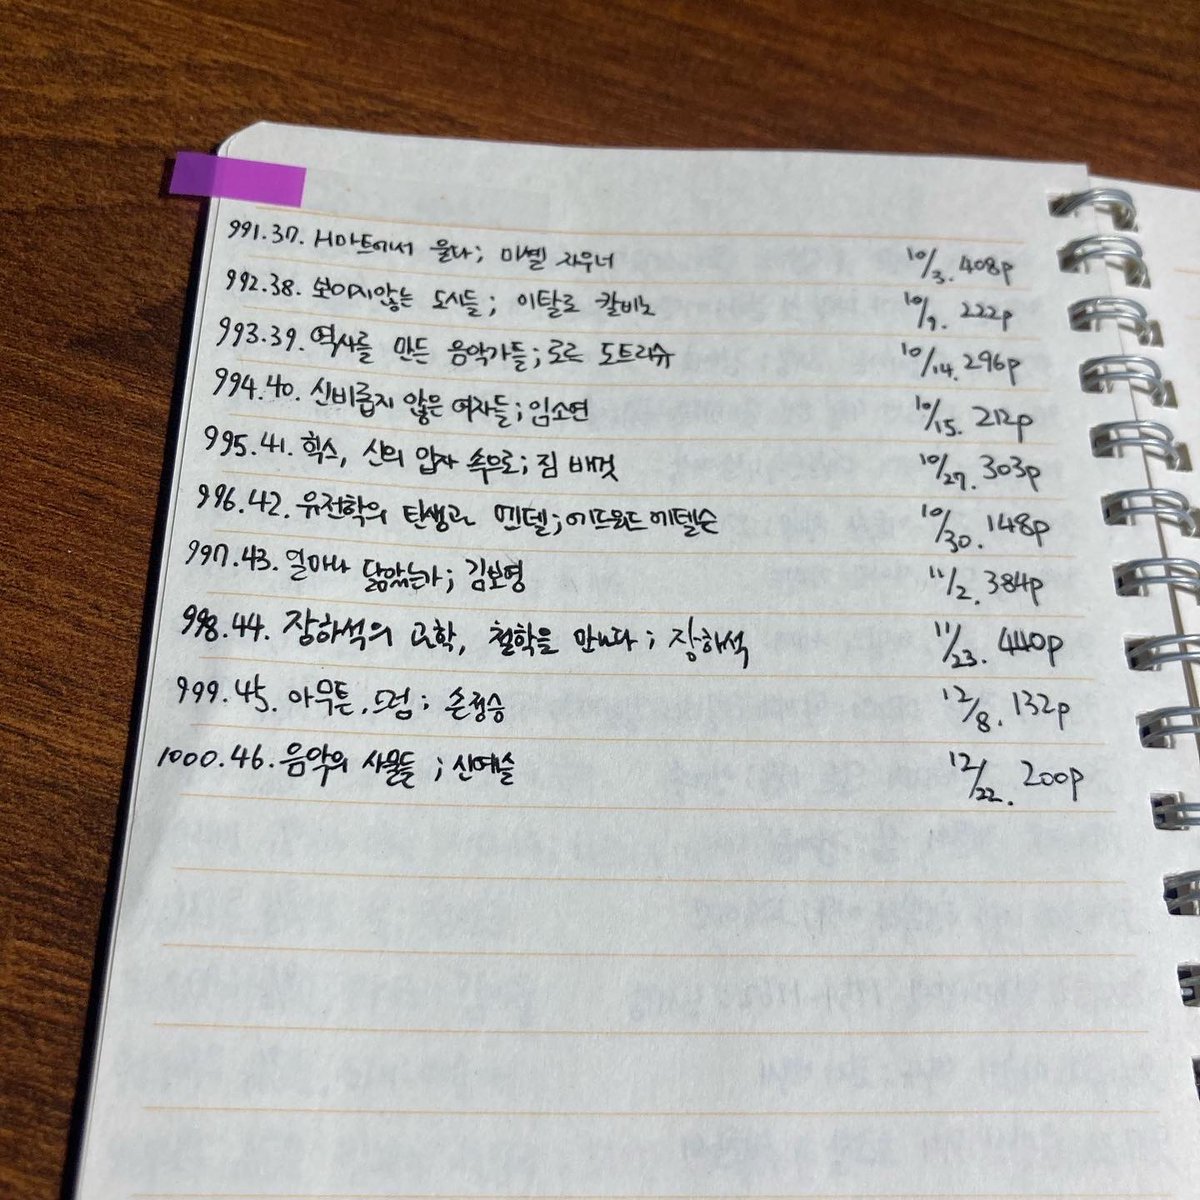 991.37. H마트에서 울다; 미셸 자우너 10/3. 408p
992.38. 보이지않는 도시들; 이탈로 칼비노 10/9. 222p
993.39. 역사를 만든 음악가들; 로르 도트리슈 10/14. 296p
994.40. 신비롭지 않은 여자들; 임소연 10/15. 212p
995.41. 힉스, 신의 입자 속으로; 짐 배것 10/27. 303p
996.42. 유전학의 탄생과 멘델; 에드워드 에델슨 10/30. 148p
997.43. 얼마나 닮았는가; 김보영 11/2. 384p
998.44. 장하석의 과학, 철학을 만나다; 장하석 11/23. 440p
999.45. 아무튼, 드럼; 손정승 12/8. 132p
1000.46. 음악의 사물들; 신예슬 12/22. 200p